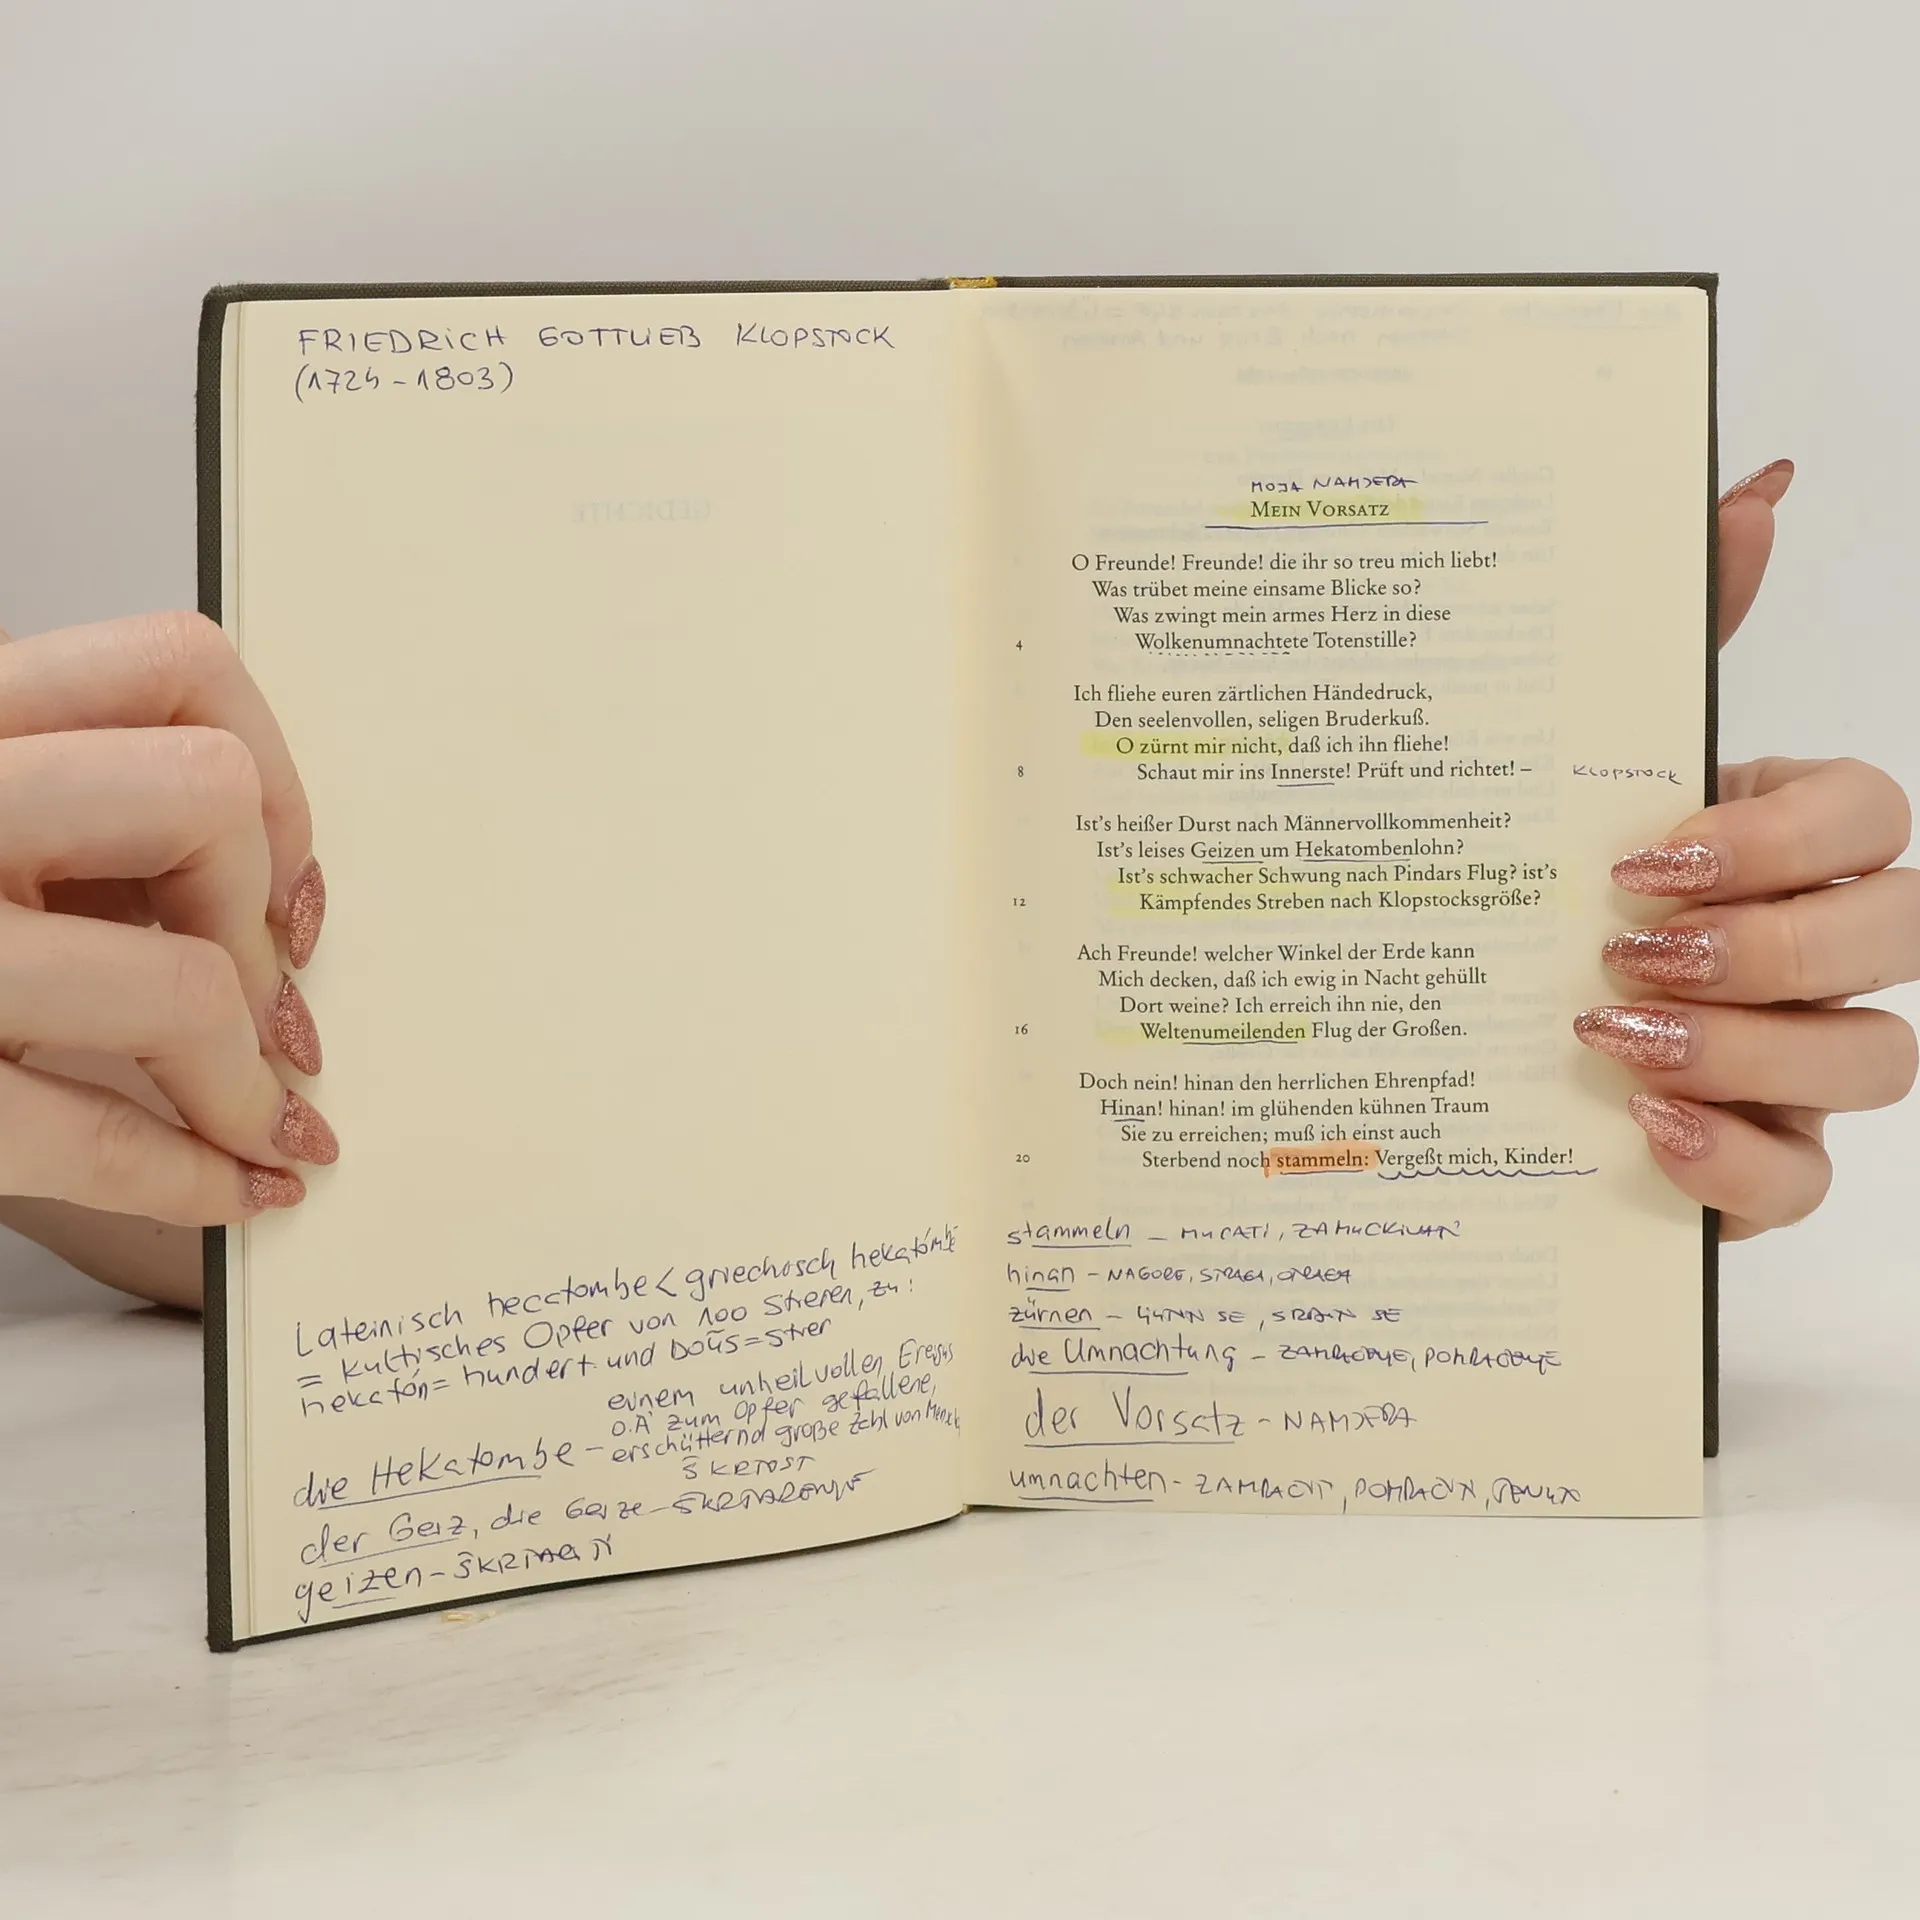 FRIEDRICH GOTTLIEB KLOPSTOCK
(1724 - 1803)
Lateinisch hecatombe < griechisch hekatómbē
= kultisches Opfer von 100 Stieren, zu:
hekatón = hundert und boũs = Stier
einem unheilvollen Ereignis
o.Ä. zum Opfer gefallene,
die Hekatombe - erschütternd große Zahl von
ŠKRTOST
der Geiz, die Geize - ŠKRTARENJE
geizen - ŠKRTARITI
MOJA NAMJERA
MEIN VORSATZ
O Freunde! Freunde! die ihr so treu mich liebt!
Was trübet meine einsame Blicke so?
Was zwingt mein armes Herz in diese
4 Wolkenumnachtete Totenstille?
Ich fliehe euren zärtlichen Händedruck,
Den seelenvollen, seligen Bruderkuß.
O zürnt mir nicht, daß ich ihn fliehe!
8 Schaut mir ins Innerste! Prüft und richtet! – KLOPSTOCK
Ist's heißer Durst nach Männervollkommenheit?
Ist's leises Geizen um Hekatombenlohn?
Ist's schwacher Schwung nach Pindars Flug? ist's
12 Kämpfendes Streben nach Klopstocksgröße?
Ach Freunde! welcher Winkel der Erde kann
Mich decken, daß ich ewig in Nacht gehüllt
Dort weine? Ich erreich ihn nie, den
16 Weltenumeilenden Flug der Großen.
Doch nein! hinan den herrlichen Ehrenpfad!
Hinan! hinan! im glühenden kühnen Traum
Sie zu erreichen; muß ich einst auch
20 Sterbend noch stammeln: Vergeßt mich, Kinder!
stammeln - MUCATI, ZAMUCKIVATI
hinan - NAGORE,
zürnen - LJUTITI SE, SRDITI SE
die Umnachtung - ZAMRAČENJE, POMRAČENJE
der Vorsatz - NAMJERA
umnachten - ZAMRAČITI, POMRAČITI,